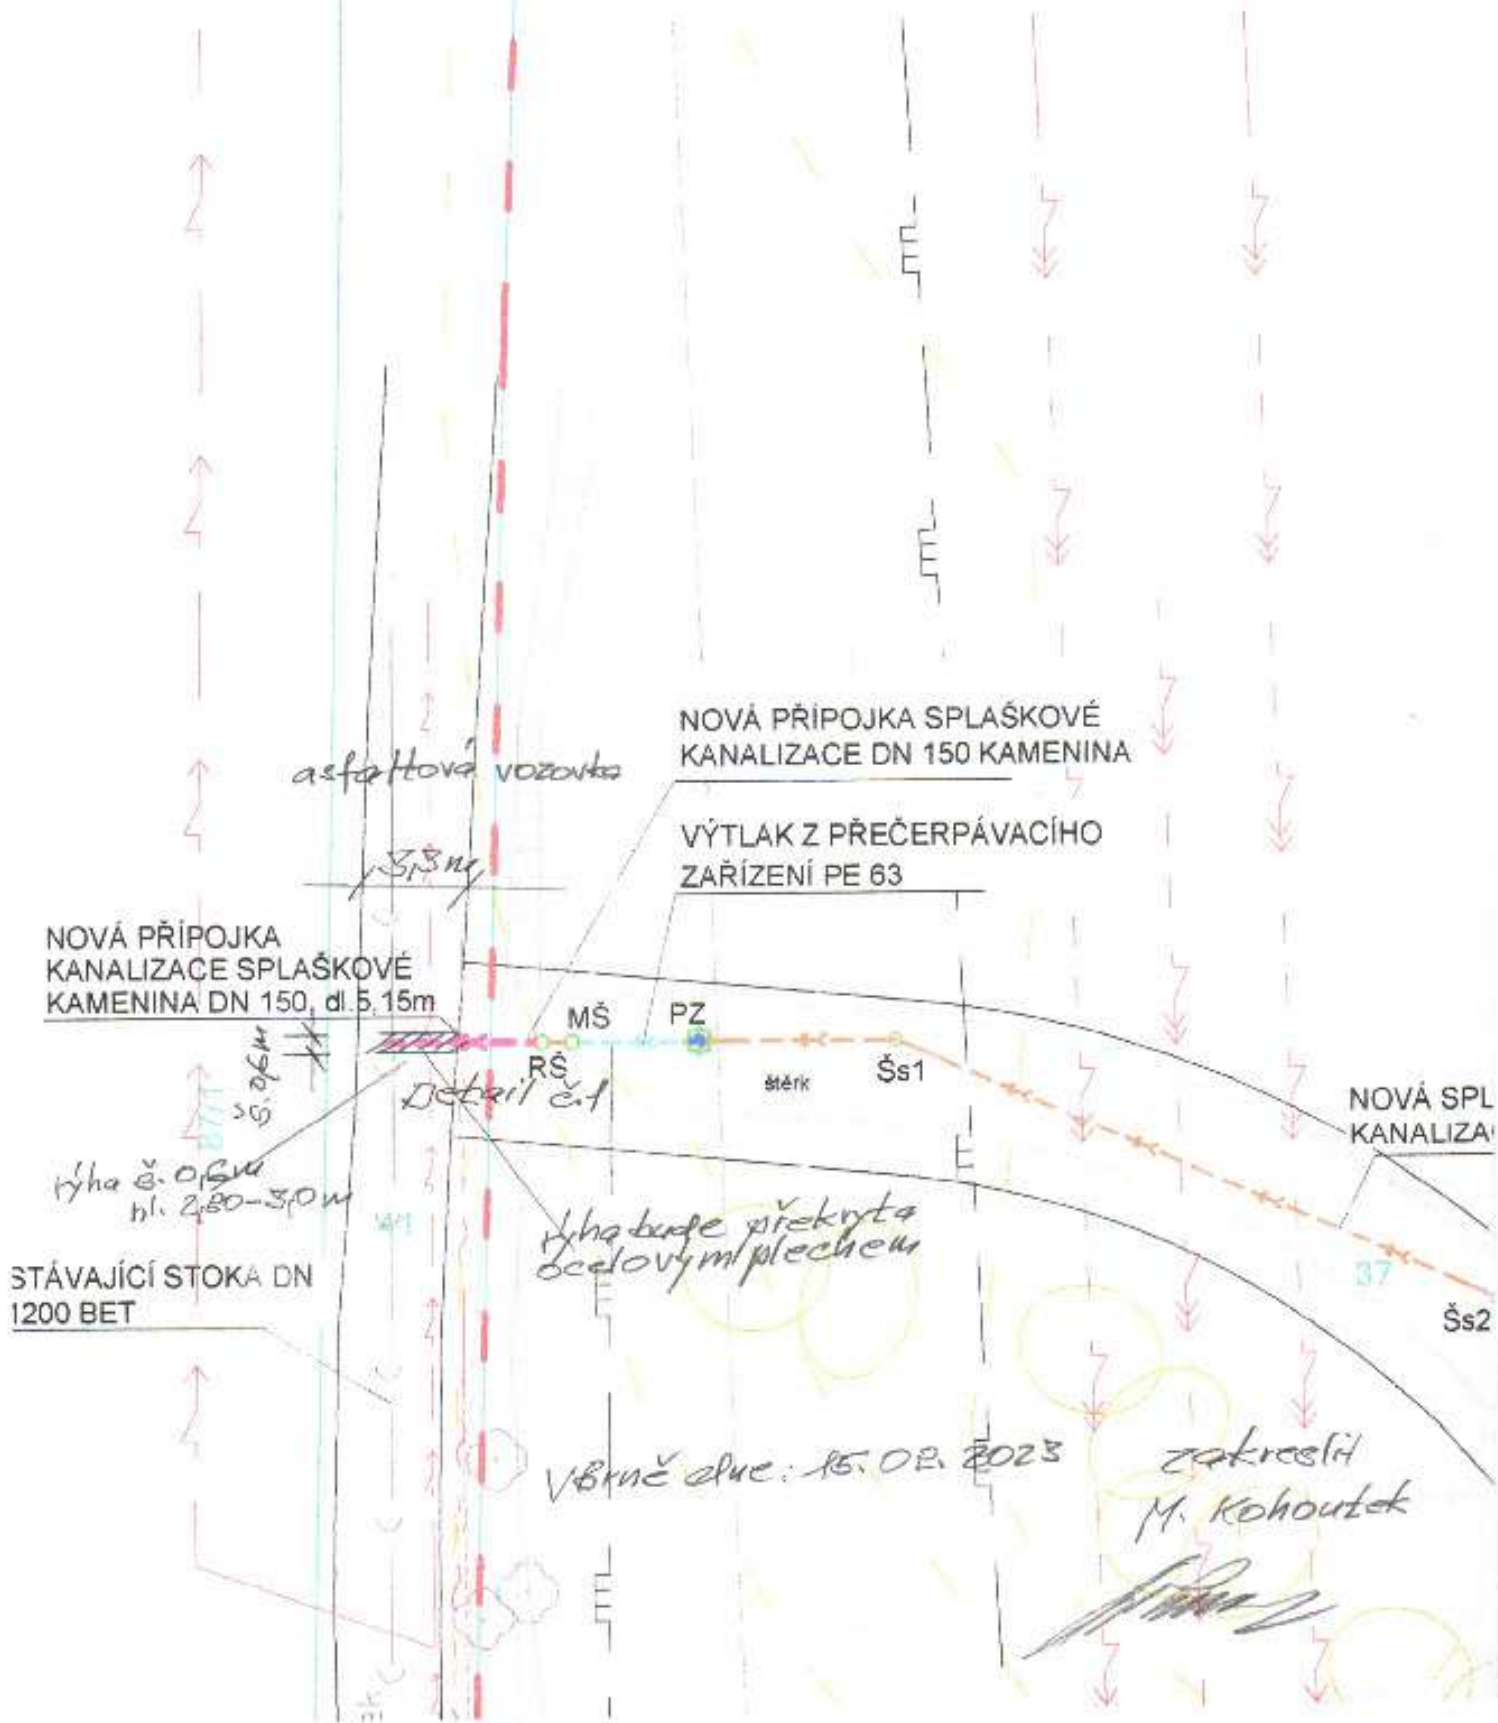 NOVÁ PŘÍPOJKA SPLAŠKOVÉ
KANALIZACE DN 150 KAMENINA
asfaltová vozovka
VÝTLAK Z PŘEČERPÁVACÍHO
ZAŘÍZENÍ PE 63
3,3 m
NOVÁ PŘÍPOJKA
KANALIZACE SPLAŠKOVÉ
KAMENINA DN 150, dl.5,15m
MŠ
PZ
RŠ
štěrk
Šs1
š. 0,6m
Detail č.1
NOVÁ SPL
KANALIZA
rýha š. 0,6m
hl. 2,80-3,0m
rýha bude překryta
ocelovým plechem
STÁVAJÍCÍ STOKA DN
1200 BET
37
Šs2
V Brně dne: 15. 02. 2023
zakreslil
M. Kohoutek